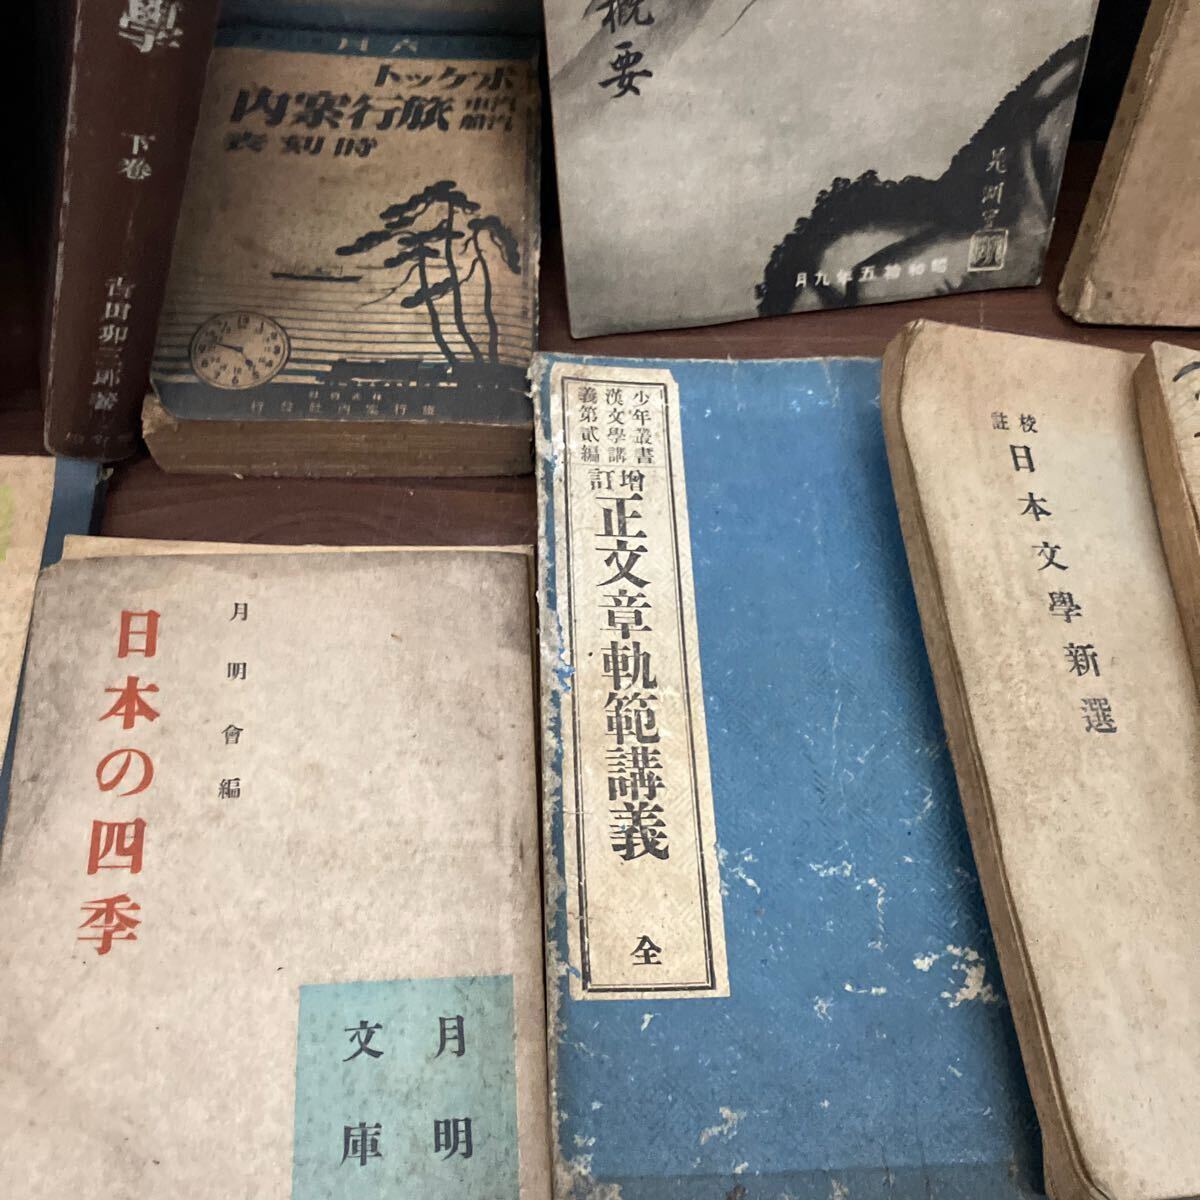 學
下巻
吉田卯三郎著
六月
ポケット
汽車
汽船
旅行案内
時刻表
旅行案内社發行
概要
晃洲畫
昭和拾五年九月
少年叢書
漢文學講
義第貳編
增訂
正文章軌範講義
全
校註
日本文學新選
月明會編
日本の四季
月明
文庫